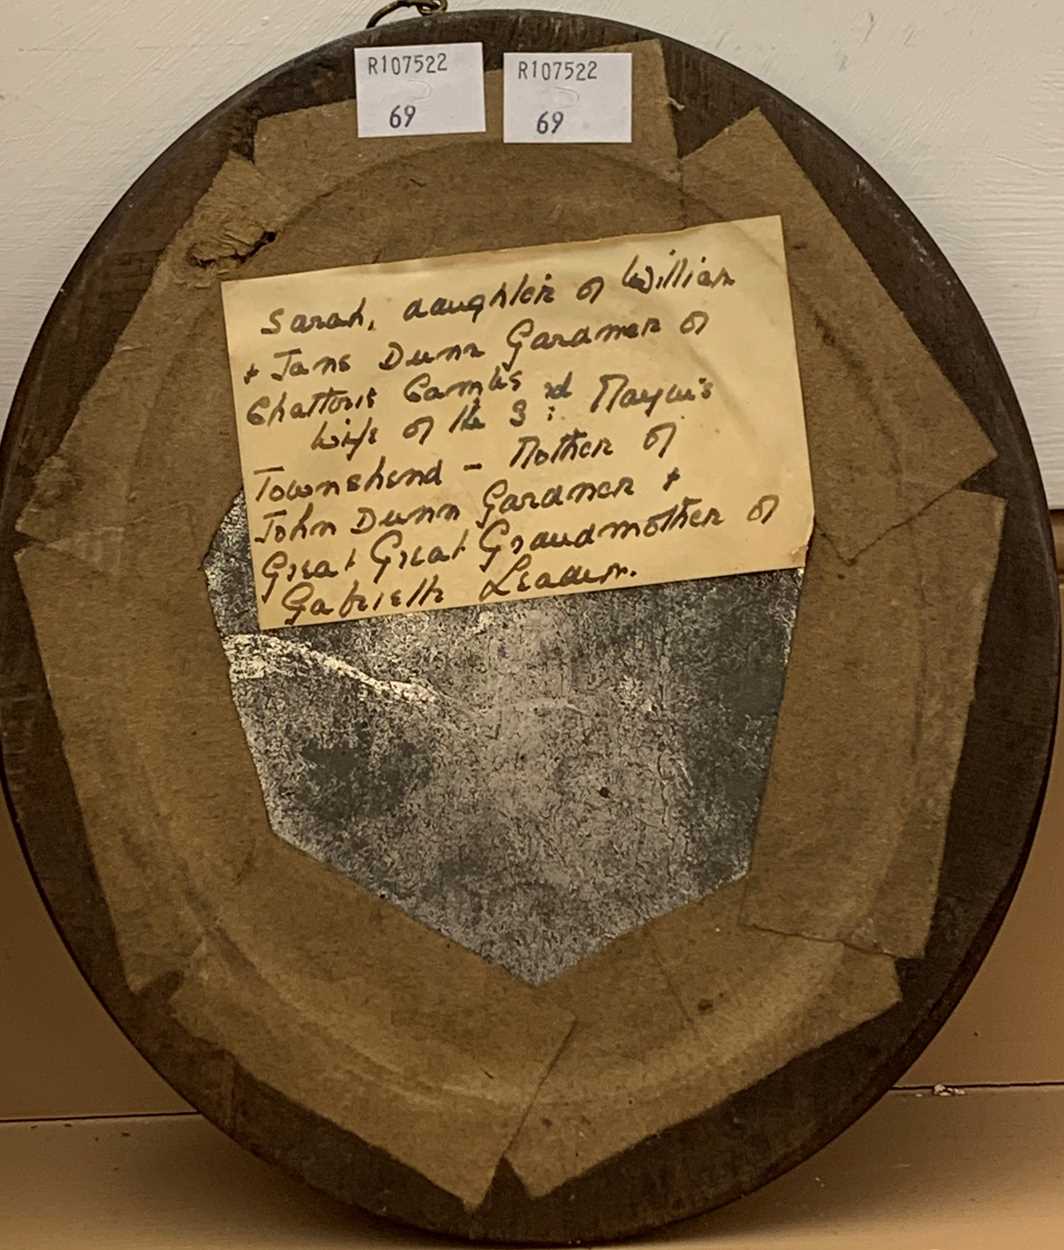 R107522
69
R107522
69
Sarah, daughter of William
+ Jane Dunn Gardner of
Chatteris Cambs
wife of the 3rd Marquis
Townshend - Mother of
John Dunn Gardner +
Great Great Grandmother of
Gabrielle Leader.